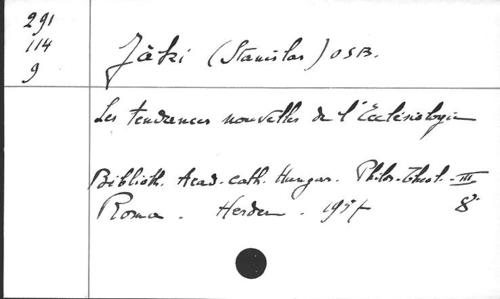 291
114
9
Jàki (Stanislas) OSB.
Les tendances nouvelles de l'Ecclésiologie
Biblioth. Acad. cath. Hungar. Philos.-theol. - III
Roma. Herder. 1957 8°